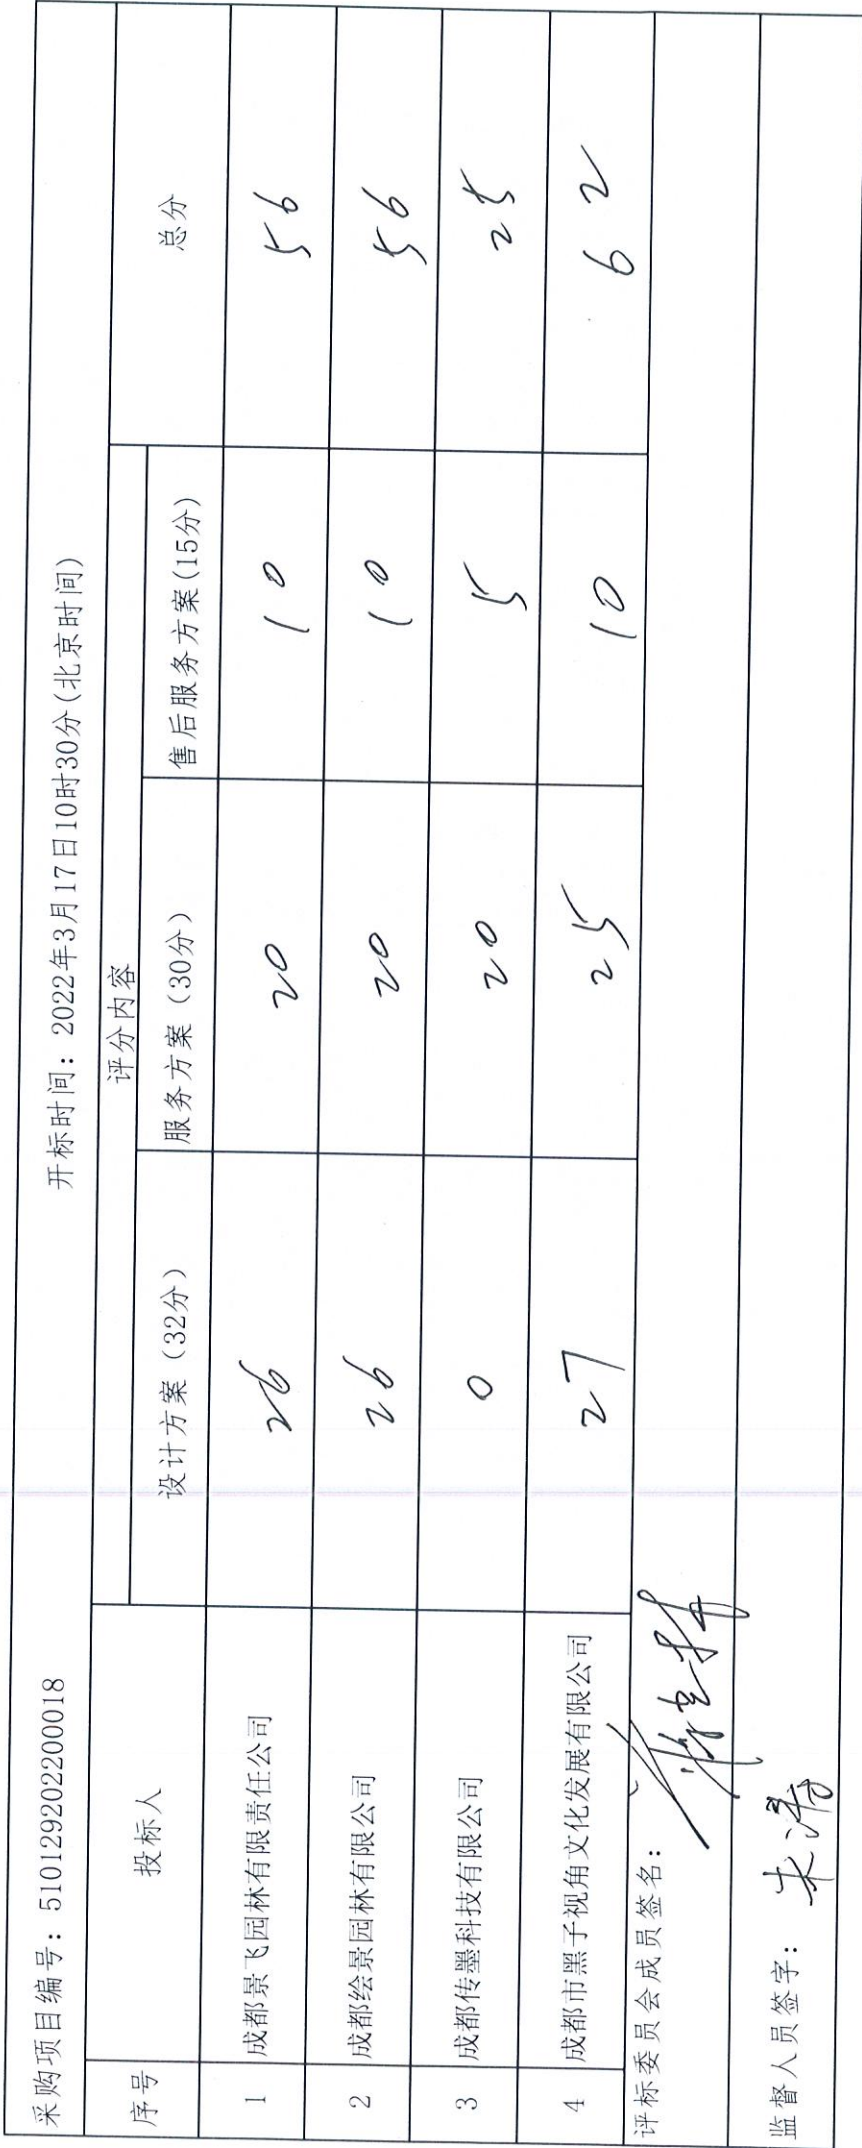 采购项目编号：510129202200018 开标时间：2022年3月17日10时30分(北京时间)
序号 投标人 评分内容 总分
设计方案（32分） 服务方案（30分） 售后服务方案(15分)
1 成都景飞园林有限责任公司 26 20 10 56
2 成都绘景园林有限公司 26 20 10 56
3 成都传墨科技有限公司 0 20 5 25
4 成都市黑子视角文化发展有限公司 27 25 10 62
评标委员会成员签名：
监督人员签字：